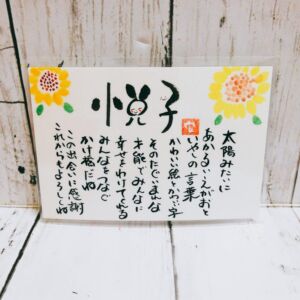 悦子
太陽みたいに
あかるいえがおと
いやしの言葉
かわいい絵とかつ字
そのたぐいまれな
才能でみんなに
幸せをわけてくれる
みんなをつなぐ
かけ橋だね
この出会いに感謝
これからもよろしくね